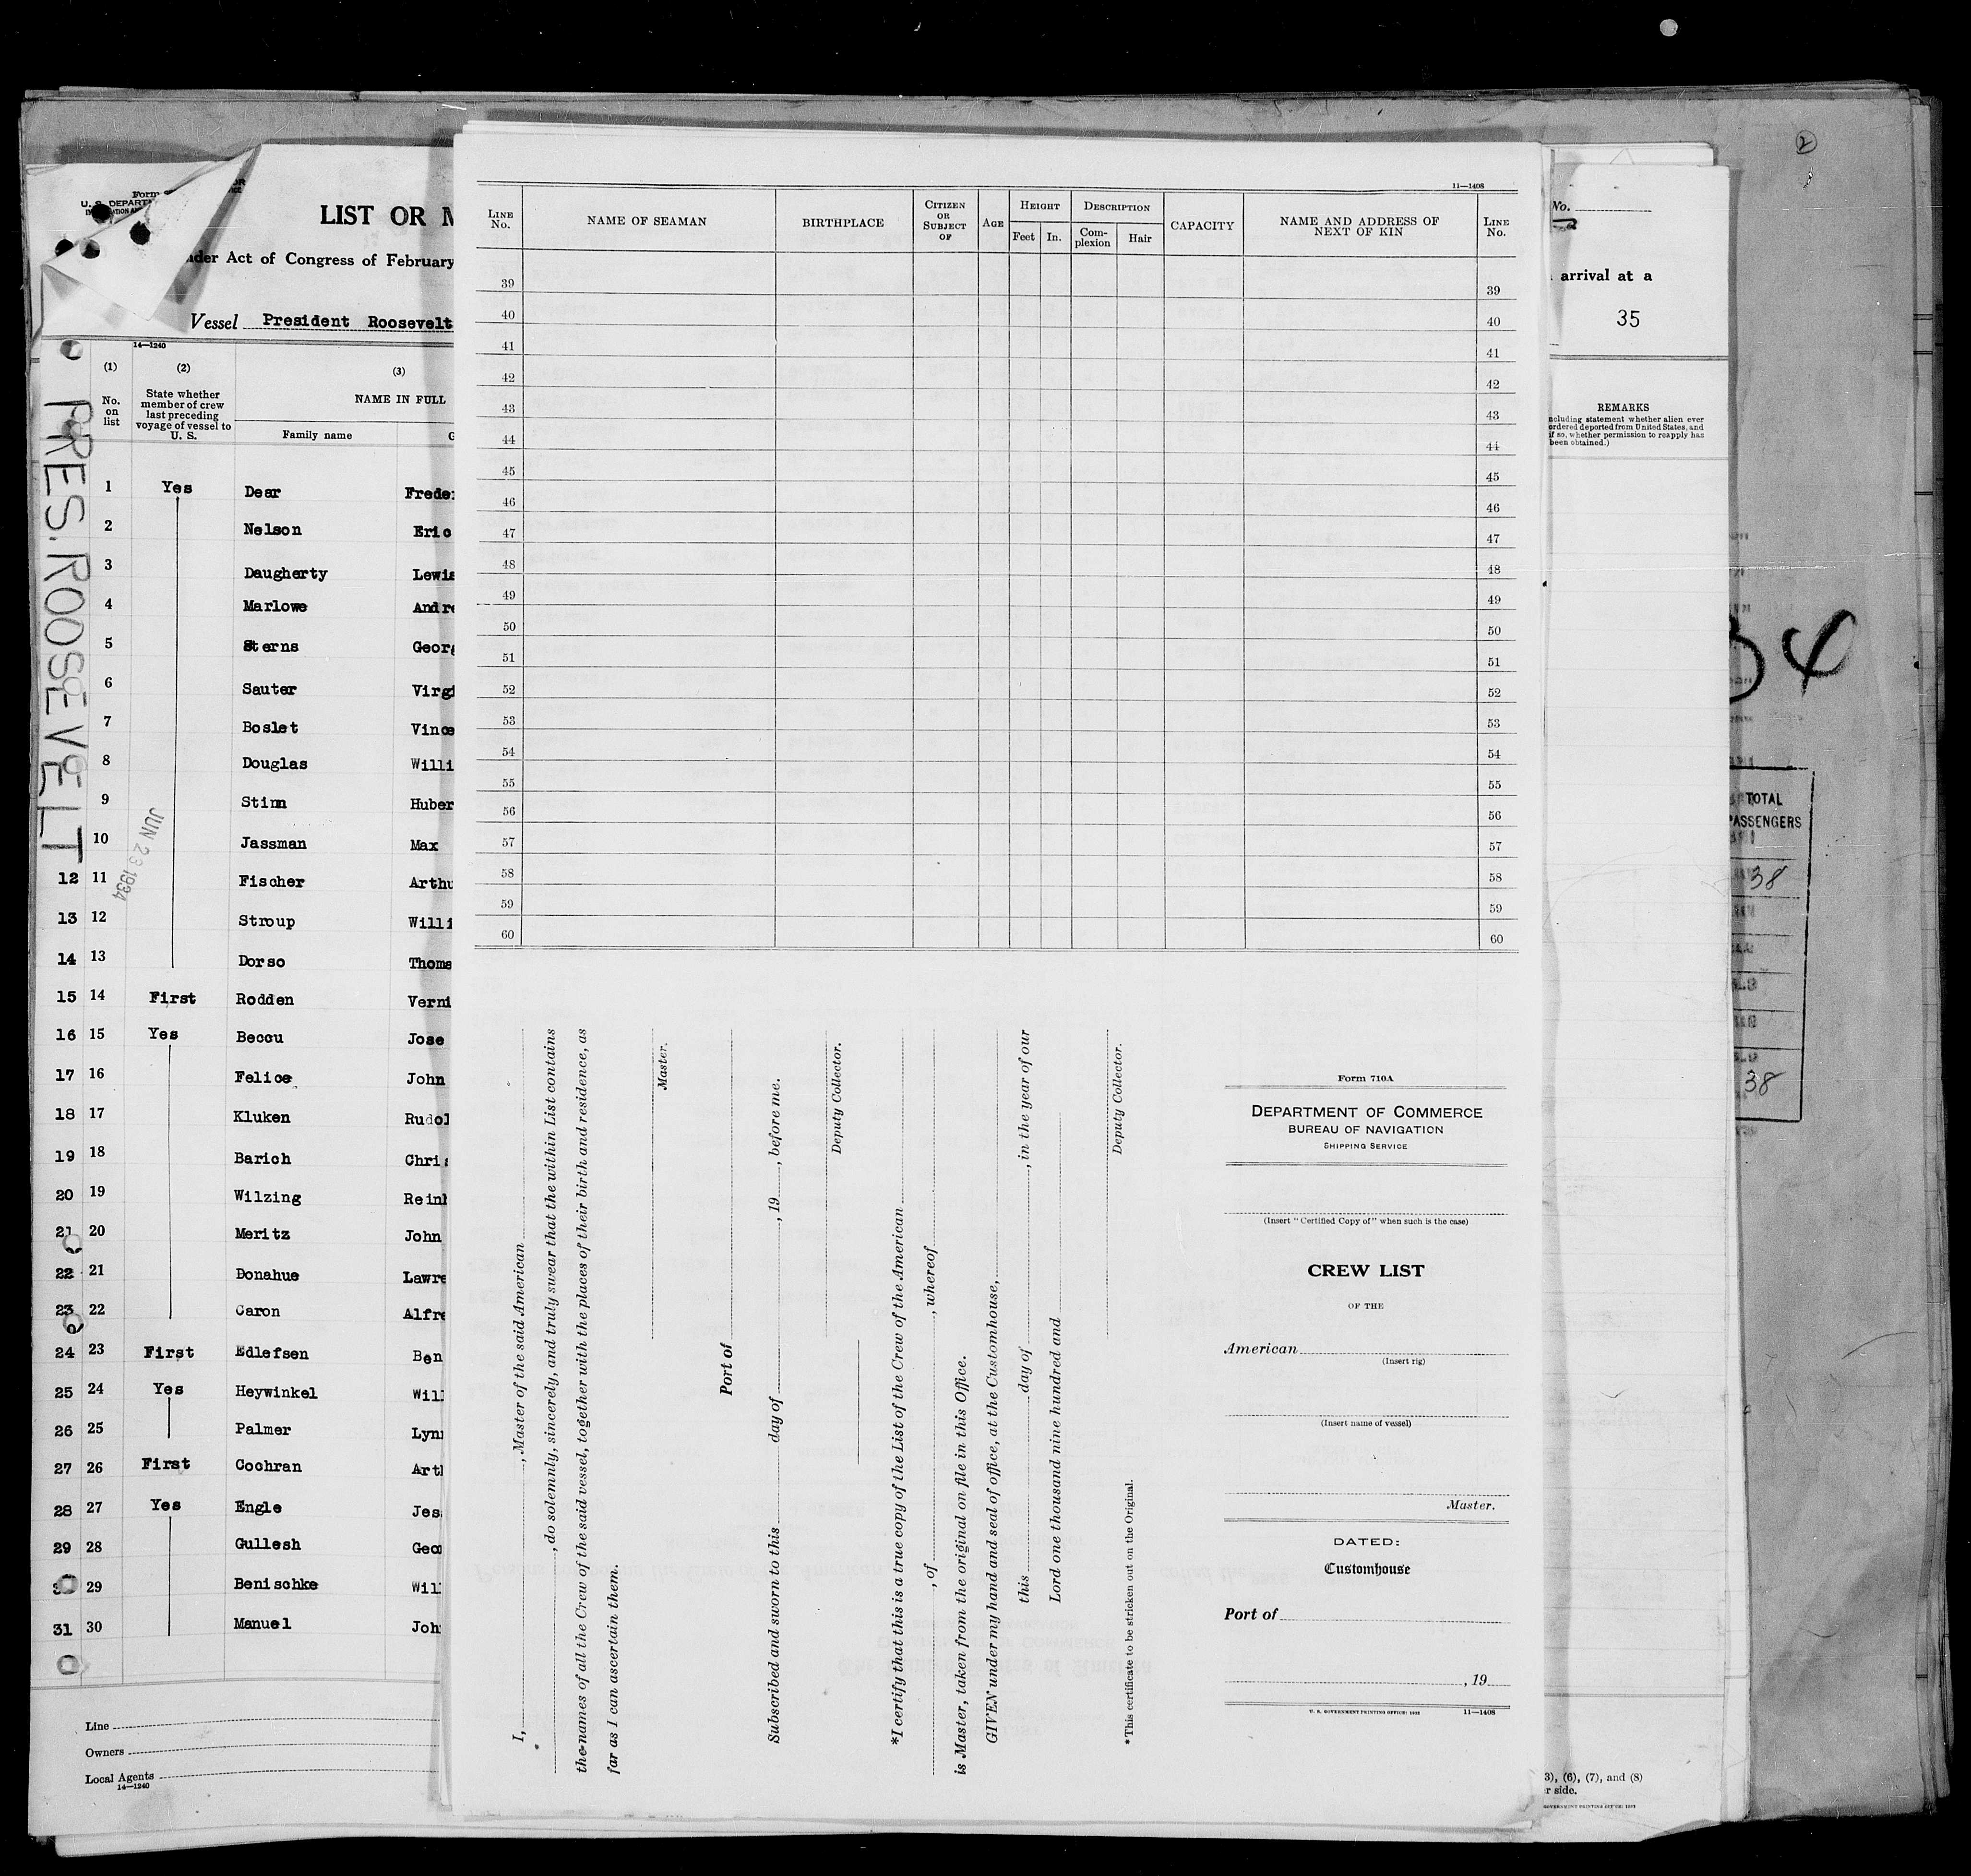 Form
U. S. DEPARTM
LIST OR M
nder Act of Congress of February
Vessel President Roosevelt
14—1240
(1) (2) (3)
No. on list
State whether member of crew last preceding voyage of vessel to U. S.
NAME IN FULL
Family name G
PRES. ROOSEVELT
JUN 23 1934
1 Yes Dear Freder
2 Nelson Eric
3 Daugherty Lewis
4 Marlowe Andre
5 Sterns Georg
6 Sauter Virgi
7 Boslet Vince
8 Douglas Willi
9 Stinn Huber
10 Jassman Max
12 11 Fischer Arthu
13 12 Stroup Willi
14 13 Dorso Thoma
15 14 First Rodden Verni
16 15 Yes Beccu Jose
17 16 Felice John
18 17 Kluken Rudol
19 18 Barich Chris
20 19 Wilzing Reinh
21 20 Meritz John
22 21 Donahue Lawre
23 22 Caron Alfre
24 23 First Edlefsen Ben
25 24 Yes Heywinkel Will
26 25 Palmer Lynn
27 26 First Cochran Arth
28 27 Yes Engle Jes
29 28 Gullesh Geo
29 Benischke Will
31 30 Manuel Joh
Line
Owners
Local Agents
14—1240
11—1408
LINE No.
NAME OF SEAMAN
BIRTHPLACE
CITIZEN OR SUBJECT OF
AGE
HEIGHT
Feet In.
DESCRIPTION
Complexion Hair
CAPACITY
NAME AND ADDRESS OF NEXT OF KIN
LINE No.
39 39
40 40
41 41
42 42
43 43
44 44
45 45
46 46
47 47
48 48
49 49
50 50
51 51
52 52
53 53
54 54
55 55
56 56
57 57
58 58
59 59
60 60
I, , Master of the said American
, do solemnly, sincerely, and truly swear that the within List contains
the names of all the Crew of the said vessel, together with the places of their birth and residence, as
far as I can ascertain them.
Master.
Port of
Subscribed and sworn to this day of , 19 , before me.
Deputy Collector.
*I certify that this is a true copy of the List of the Crew of the American
, of , whereof
is Master, taken from the original on file in this Office.
GIVEN under my hand and seal of office, at the Customhouse,
this day of , in the year of our
Lord one thousand nine hundred and
Deputy Collector.
*This certificate to be stricken out on the Original.
Form 710A
DEPARTMENT OF COMMERCE
BUREAU OF NAVIGATION
SHIPPING SERVICE
(Insert "Certified Copy of" when such is the case)
CREW LIST
OF THE
American
(Insert rig)
(Insert name of vessel)
Master.
DATED:
Customhouse
Port of
, 19
U. S. GOVERNMENT PRINTING OFFICE: 1933 11—1408
No.
arrival at a
35
REMARKS
ncluding statement whether alien ever
ordered deported from United States, and
if so, whether permission to reapply has
been obtained.)
3), (6), (7), and (8)
r side.
GOVERNMENT PRINTING OFFICE: 1933
2
34
TOTAL
PASSENGERS
38
38